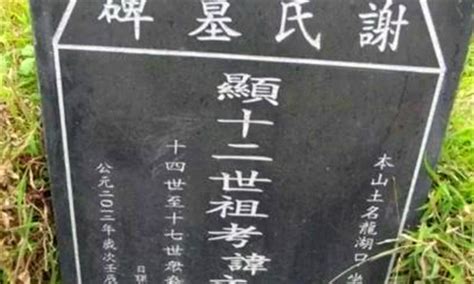 謝氏墓碑
本山土名龍湖口坐
顯十二世祖考諱
十四世至十七世眾
公元二〇一二年歲次壬辰